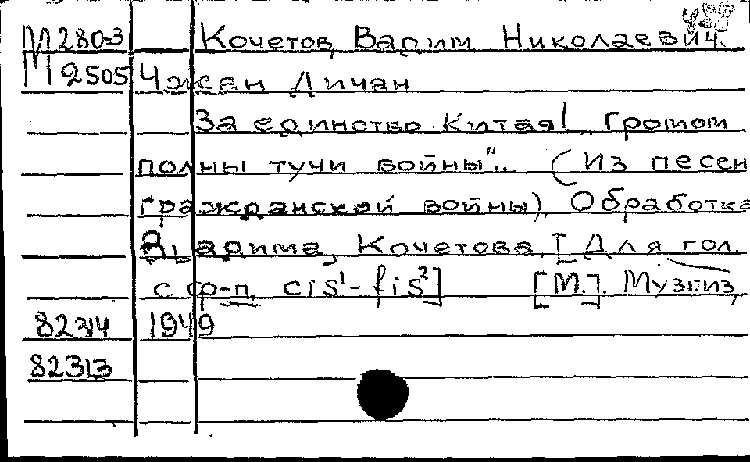 М2803 Кочетов, Вадим Николаевич.
М2505 Чжан Личан
За единство Китая! "Громом
полны тучи войны".. (Из песен
гражданской войны). Обработка
Вадима Кочетова. [Для гол.
с ф-п. cis¹-fis²] [М.]. Музгиз,
82314 1949
82313